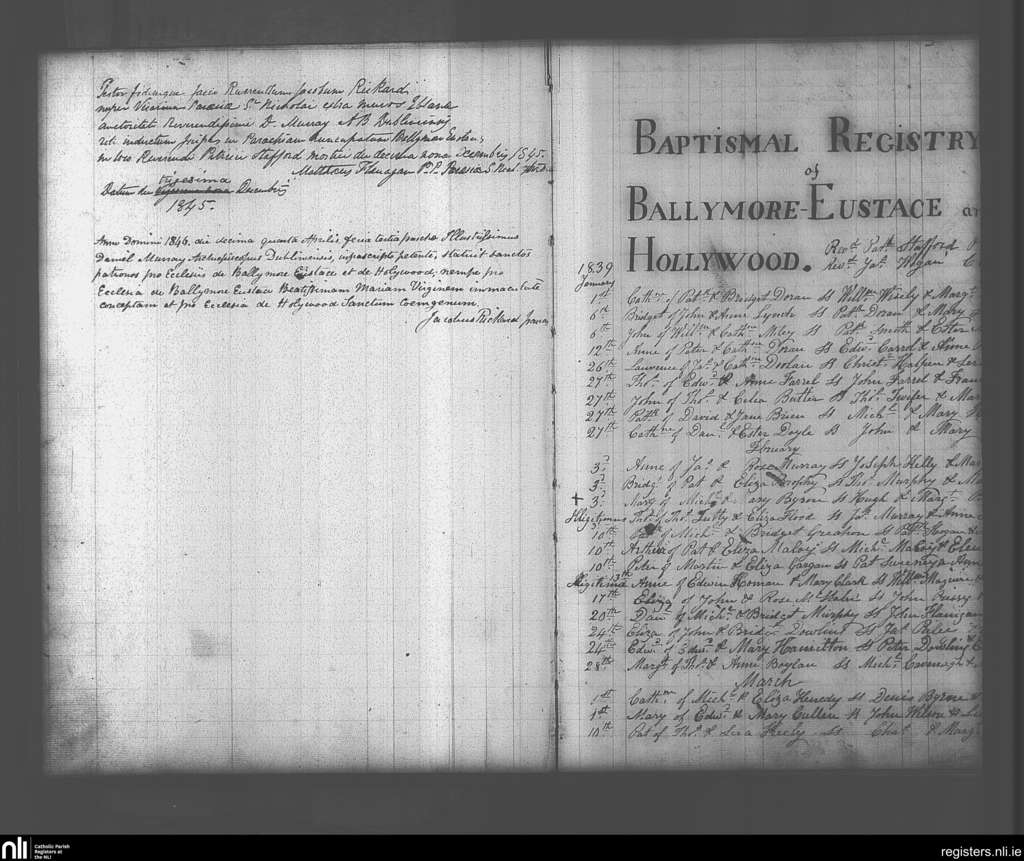 Testor fidemque facio Reverendum Jacobum Rickard
nuper Vicarium Paraeciae Sti Nicholai extra muros Eblanae
auctoritate Reverendissimi D. Murray A B Dubliniensis
in loco Reverendi Patricii Stafford mortui die decima nona Decembris 1845.
Matthaeus Flanagan P.P.
Datum die trigesima Decembris
1845.
Anno Domini 1846. die decima quarta Aprilis, feria tertia paschae Illustrissimus
Daniel Murray Archiepiscopus Dubliniensis, infrascripto petente, statuit sanctos
patronos pro Ecclesiis de Ballymore Eustace et de Holywood, nempe pro
Ecclesia de Ballymore Eustace Beatissimam Mariam Virginem immaculatè
conceptam et pro Ecclesia de Holywood Sanctum Coemgenum.
Jacobus Rickard
BAPTISMAL REGISTRY
of
BALLYMORE-EUSTACE
HOLLYWOOD.
Revd. Patk. Stafford P
Revd. Jas. C
1839
January
1st Cathr. of Patk. & Bridget Doran Ss Willm. Wisely & Margt.
6th Bridget of John & Anne Lynch Ss Patk. Doran & Mary
6th John of Willm. & Cathn. Miley Ss Patk. Smith & Ester
12th Anne of Peter & Cathne. Doran Ss Edwd. Carrol & Anne
26th Laurence of Jas. & Cathne. Doolan Ss Christr. Halpen &
27th Thos. of Edwd. & Anne Farrel Ss John Farrel & Fran
27th John of Thos. & Celia Butler Ss Thos. & Mar
27th Patk. of David & Jane Brien Ss Michl. & Mary
27th Cathne. of Danl. & Ester Doyle Ss John & Mary
February
3d Anne of Jas. & Rose Murray Ss Joseph Kelly & Mar
3d Bridgt. of Pat & Eliza Brophy Ss Thos. Murphy & Ma
+ 3d Marg of Michl. & ary Byrne Ss Hugh & Margt.
Illigitimus Thos. of Thos. Tutty & Eliza Flood Ss Jas. Murray & Anne
10th Patk. of Michl. & Bridget Ss Patk. Hogan &
10th Arthur of Pat & Eliza Maloy Ss Michl. Maloy & Elen
10th Peter of Martin & Eliza Gargan Ss Pat Sweeney & Ann
Illigitima 13th Anne of Edwin Homan & Mary Clark Ss Willm. Maguire &
17th Eliza of John & Rose Ss John
20th Danl. of Michl. & Bridget Murphy Ss John Flanigan
24th Eliza of John & Bridgt. Dowling Ss Jas.
24th Edwd. of Edwd. & Mary Hamilton Ss Peter Dowling &
28th Margt. of Thos. & Anne Boylan Ss Michl. Cavenagh &
March
1st Cathne. of Michl. & Eliza Henedy Ss Denis Byrne &
1st Mary of Edwd. & Mary Cullen Ss John Wilson &
10th Pat of Thos. & Ss Chas. & Marg
nli
Catholic Parish
Registers at
the NLI
registers.nli.ie